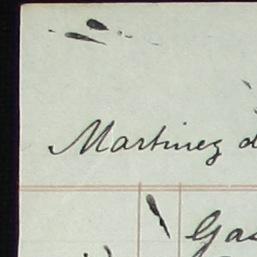 Martinez d
Gas